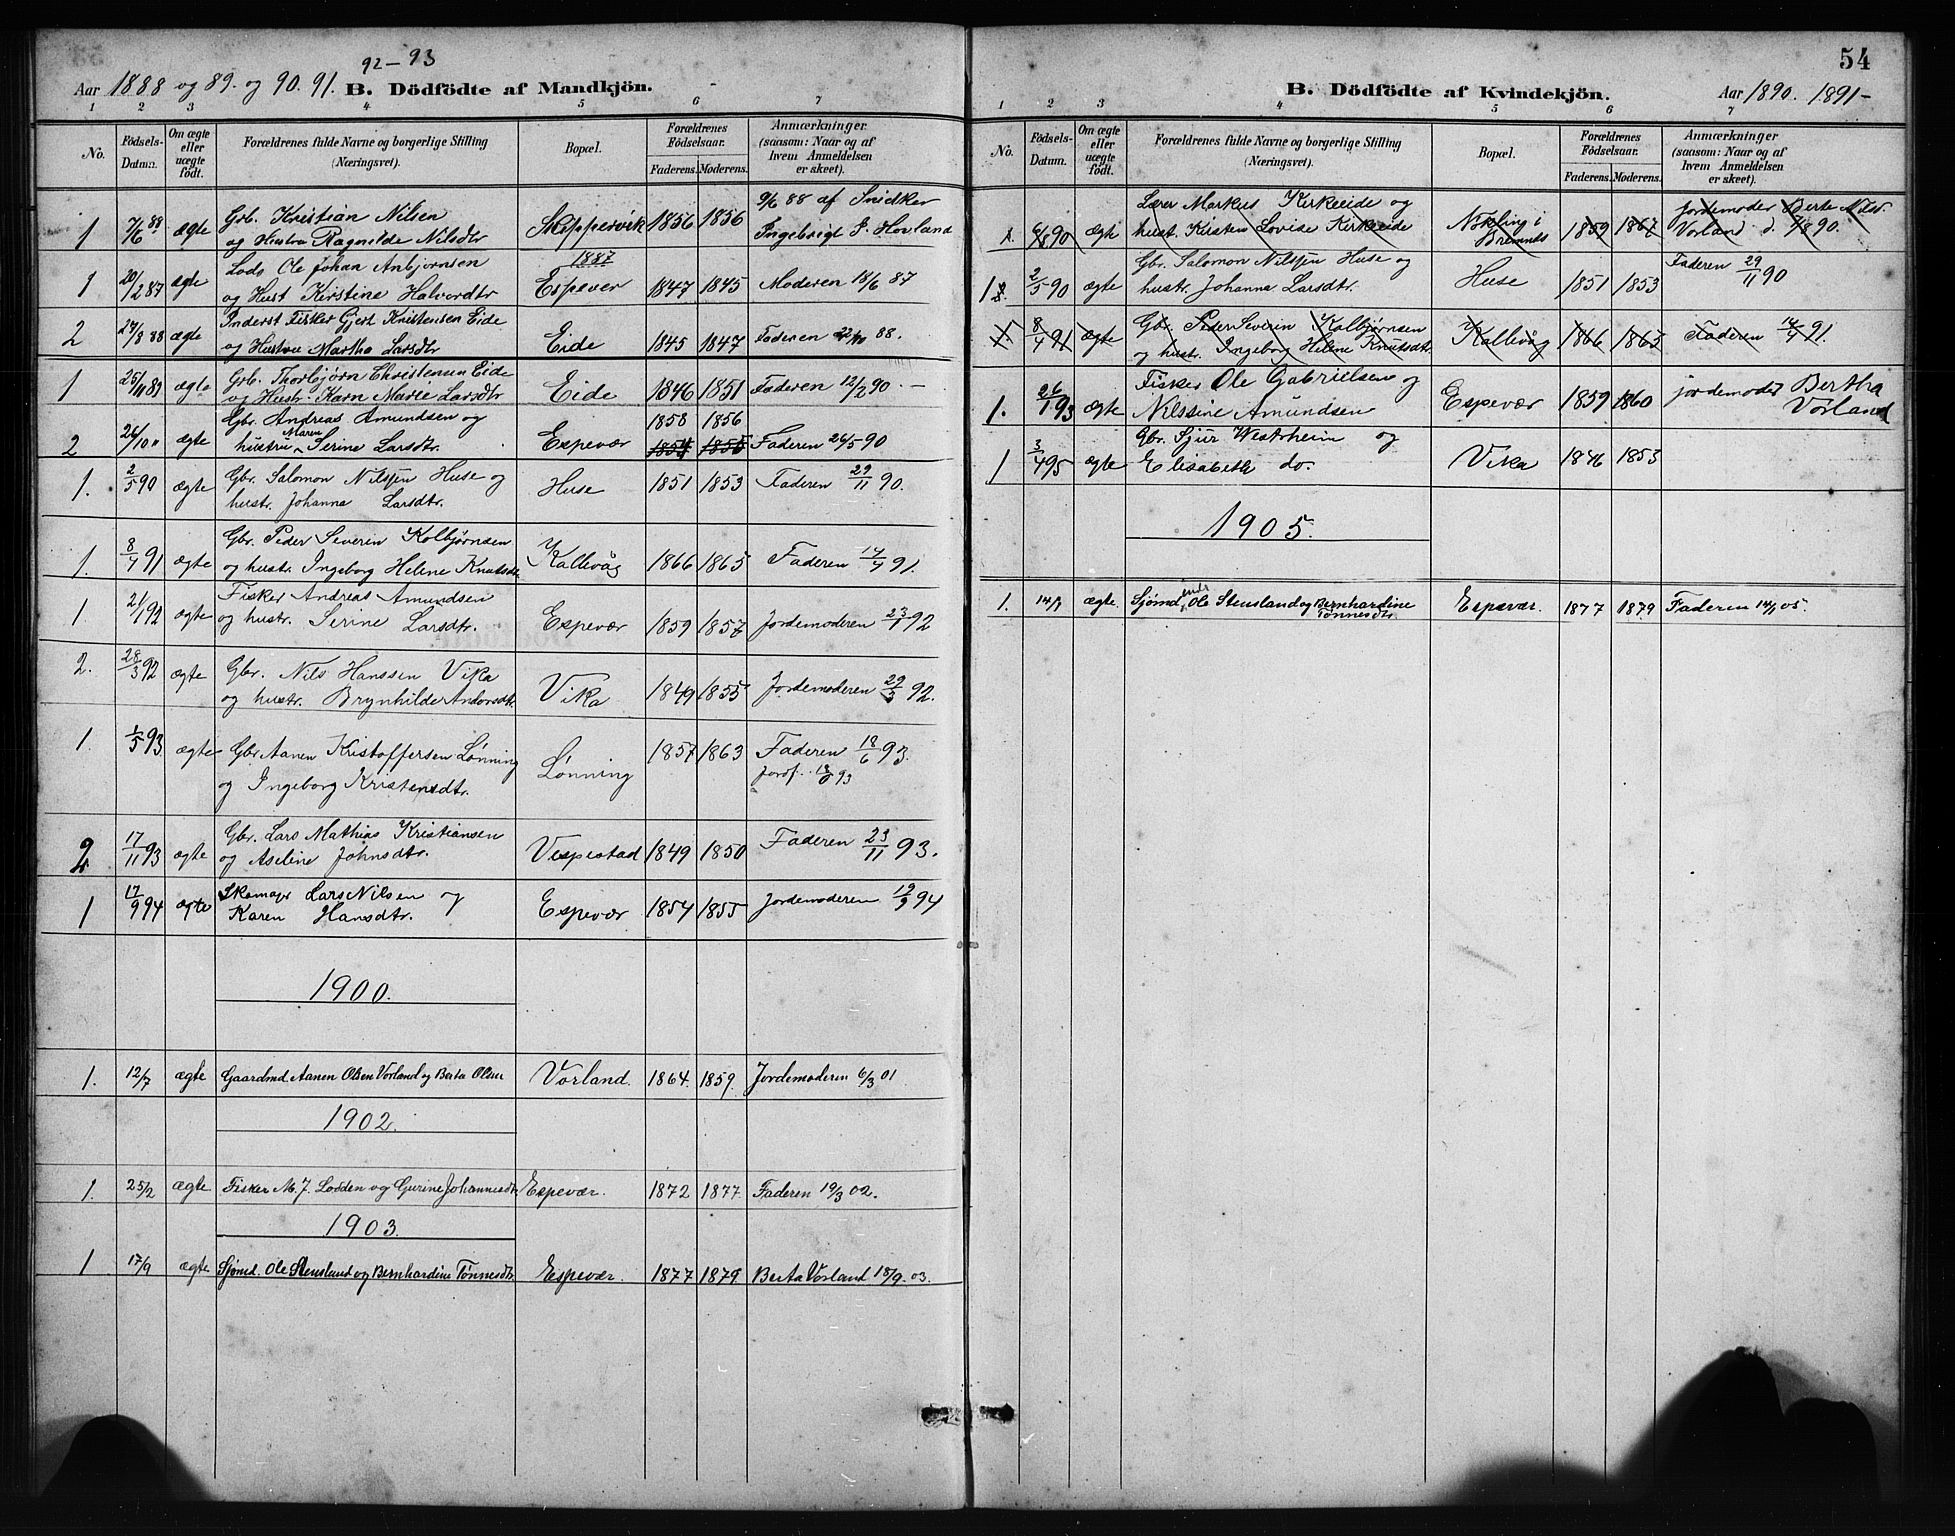 92-93
Aar 1888 og 89. og 90. 91. B. Dödfödte af Mandkjön.
1 2 3 4 5 6 7
No. Födsels-Datum. Om ægte eller uægte födt. Forældrenes fulde Navne og borgerlige Stilling (Næringsvei). Bopæl. Forældrenes Födselsaar. Faderens. Moderens. Anmærkninger (saasom: Naar og af hvem Anmeldelsen er skeet).
1 7/6 88 ægte Grb. Kristian Nilsen Skippervik 1856 1856 9/6 88 af Snidker
og Hustru Ragnilde Nilsdtr Ingebrigt P. Hovland
1887
1 20/2 87 ægte Lods Ole Johan Anbjørnsen Espevær 1847 1845 Moderen 18/6 87
og Hust Kirstina Halvordtr
2 27/8 88 ægte Inderst Fisker Gjert Kristensen Eide Eide 1845 1847 Faderen 22/10 88.
og Hustru Martha Larsdtr
1 25/11 89 ægte Grb. Thorbjørn Christensen Eide Eide 1846 1851 Faderen 12/2 90. -
og Hustr. Karn Marie Larsdtr
2 26/10 " ægte Gbr. Andreas Amundsen og Espevær 1858 1856 Faderen 26/5 90
hustru Maren Serine Larsdtr. 1854 1855
1. 2/5 90 ægte Gbr. Salomon Nilssen Huse og Huse 1851 1853 Faderen 29/11 90.
hustr. Johanna Larsdtr.
1. 8/4 91 ægte Gbr. Peder Severin Kolbjørnsen Kallevåg 1866 1865 Faderen 14/4 91.
og hustr. Ingeborg Helene Knutsdtr
1. 21/1 92 ægte Fisker Andreas Amundsen Espevær 1859 1857 Jordemoderen 23/1 92
og hustr. Serine Larsdtr.
2. 28/3 92 ægte Gbr. Nils Hanssen Vika Vika 1849 1855 Jordemoderen 29/3 92.
og hustr. Brynhilde Andersdtr.
1. 1/5 93 ægte Gbr Aanen Kristoffersen Lønning Lønning 1857 1863 Faderen 18/6 93.
og Ingeborg Kristensdtr.
2 17/11 93 ægte Gbr. Lars Mathias Kristiansen Vespestad 1849 1850 Faderen 23/11 93.
og Aseline Johnsdtr.
1 17/9 94 ægte Skomagr Lars Nilsen og Espevær 1854 1855 Jordemoderen 19/9 94
Karen Hansdtr.
1900.
1. 12/7 ægte Gaardmd Aanen Olsen Vorland og Berta Olsen Vorland. 1864. 1859. Jordemoderen 6/3 01
1902.
1. 25/2 ægte Fisker M. J. Lodden og Gurine Johannesdtr Espevær. 1872 1877. Faderen 19/3 02.
1903.
1 17/9 ægte Sjømd. Ole Stensland og Bernhardine Tønnesdtr Espevær. 1877 1879. Berta Vorland 18/9. 03.
54
B. Dödfödte af Kvindekjön. Aar 1890. 1891-
1 2 3 4 5 6 7
No. Födsels-Datum. Om ægte eller uægte födt. Forældrenes fulde Navne og borgerlige Stilling (Næringsvei). Bopæl. Forældrenes Födselsaar. Faderens. Moderens. Anmærkninger (saasom: Naar og af hvem Anmeldelsen er skeet).
1. 6/8 90 ægte Lærer Markus Kirkeeide og Nøkling i 1859 1867 Jordemoder Berte Nils.
hust. Kristen Lovise Kirkeeide Bremnes Vorland d. 7/8 90.
1 2/5 90 ægte Gbr. Salomon Nilssen Huse og Huse 1851 1853 Faderen 29/11 90
hustr. Johanna Larsdtr.
1. 8/4 91 ægte Gbr. Peder Severin Kolbjørnsen Kallevåg 1866 1865 Faderen 14/4 91.
og hustr. Ingeborg Helene Knutsdtr.
1. 26/1 93 ægte Fisker Ole Gabrielsen og Espevær 1859 1860 jordemoder Bertha
Nilssine Amundsen Vorland
1 3/4 95 ægte Gbr. Sjur Westrheim og Vika 1846 1853
Elisabeth do.
1905.
1. 14/1 ægte. Sjømd Ole Stensland og Bernhardine Espevær. 1877 1879 Faderen 14/1 05.
Tønnesdtr.